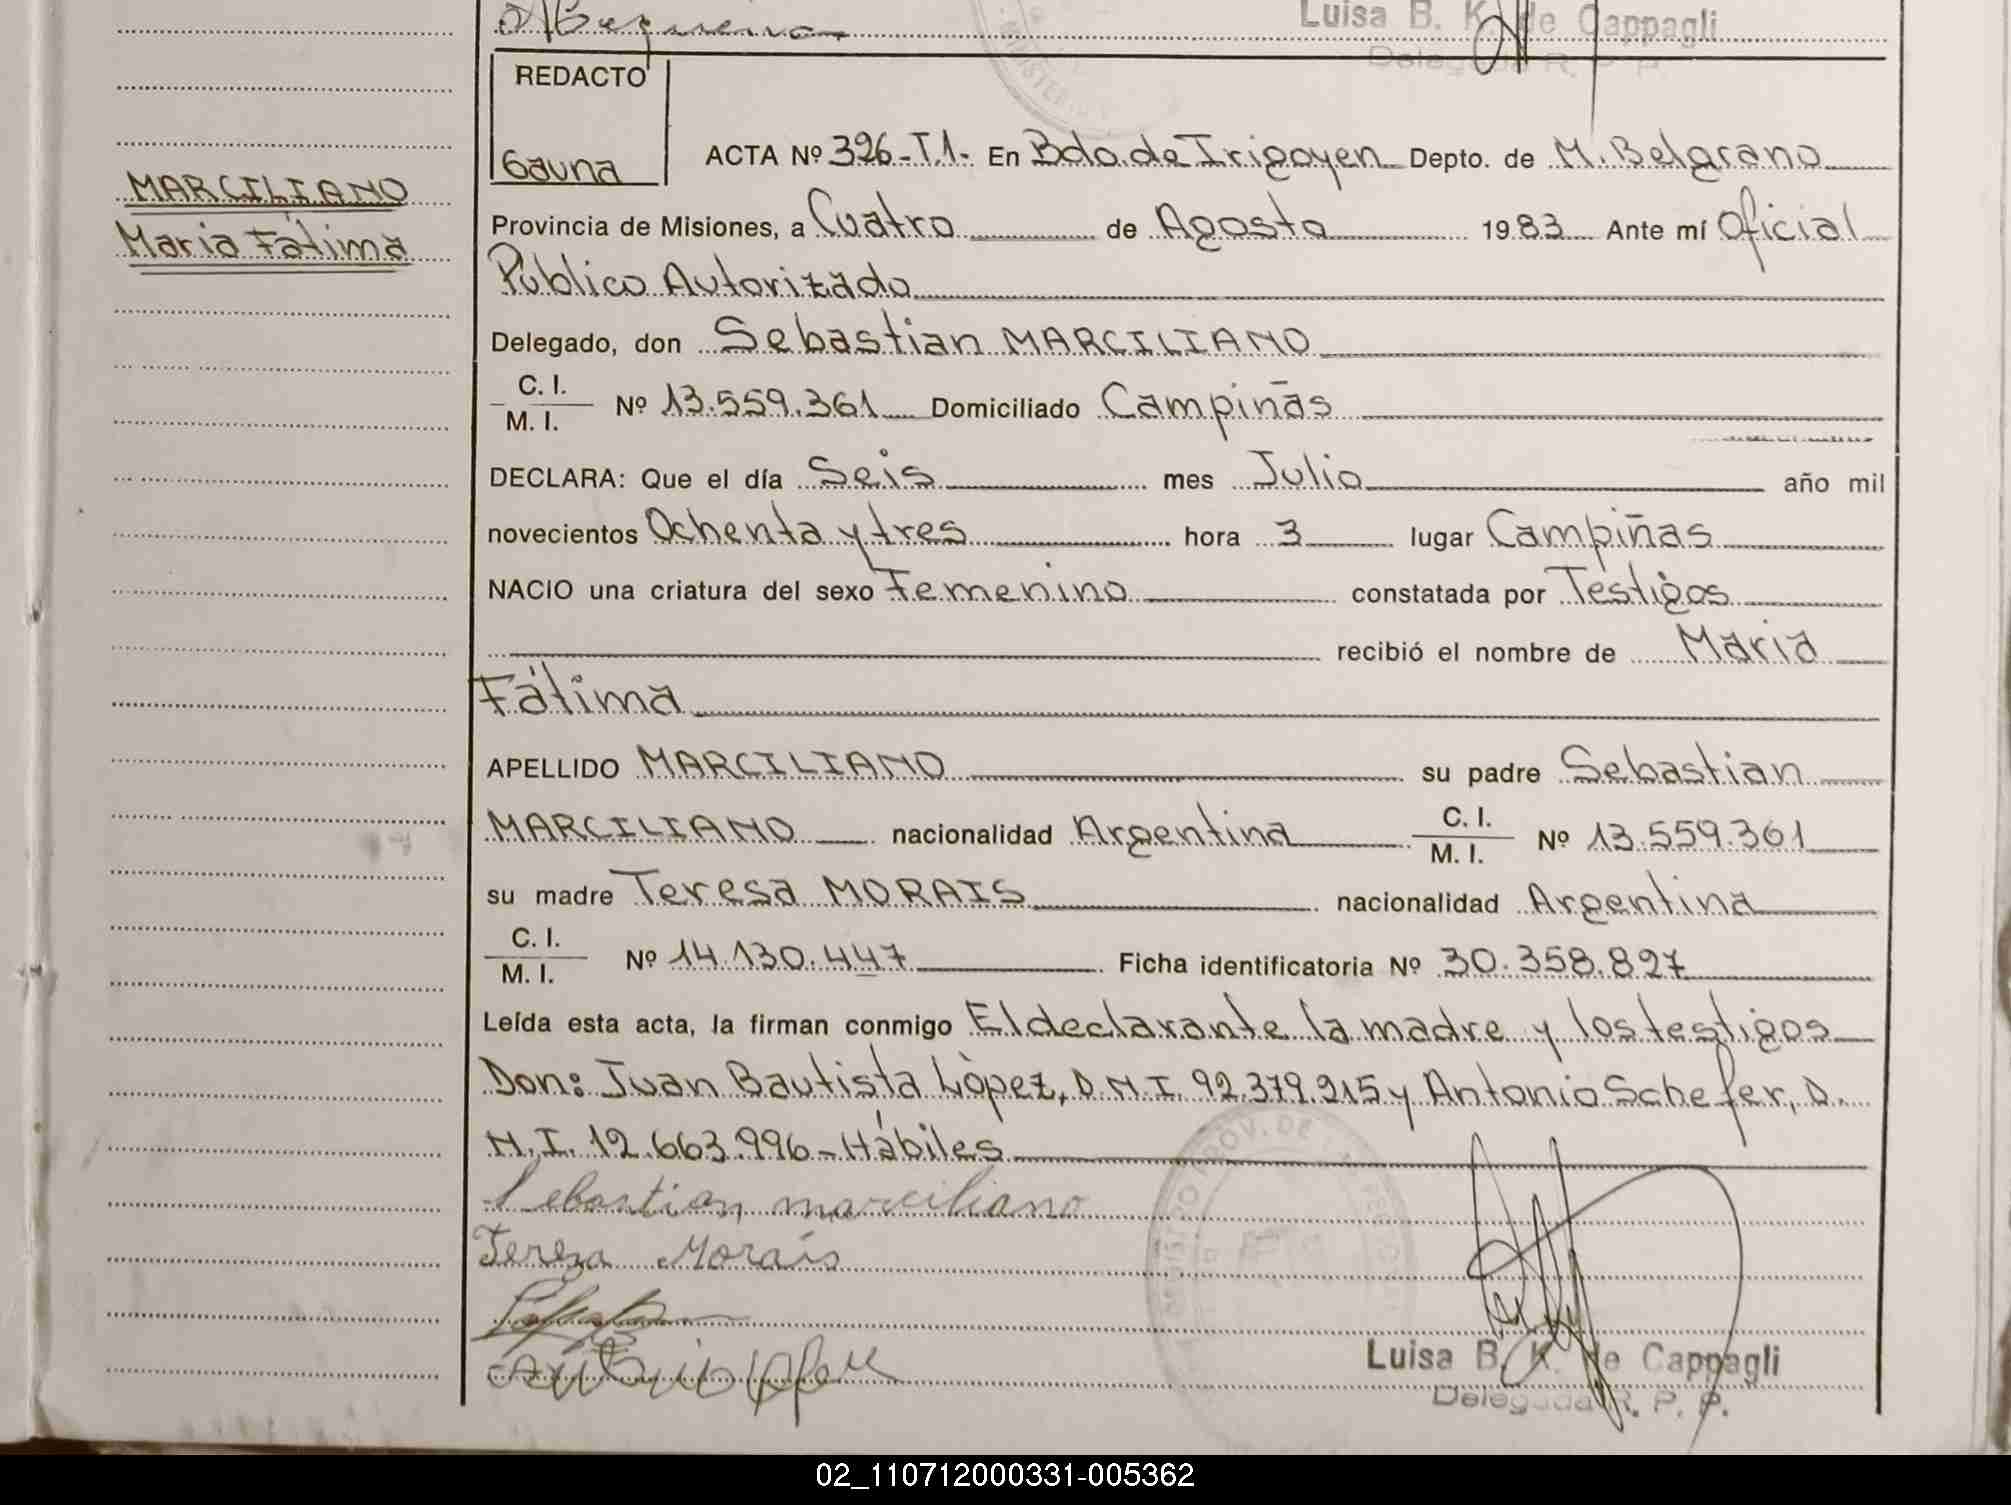 Luisa B. K. de Cappagli
Delegada R. P. P.
REDACTO
Gauna
ACTA Nº 326-T.1- En Bdo. de Irigoyen Depto. de M. Belgrano
MARCILIANO
Maria Fátima
Provincia de Misiones, a Cuatro de Agosto 1983 Ante mí Oficial
Público Autorizado
Delegado, don Sebastian MARCILIANO
C. I.
M. I. Nº 13.559.361 Domiciliado Campiñas
DECLARA: Que el día Seis mes Julio año mil
novecientos Ochenta y tres hora 3 lugar Campiñas
NACIO una criatura del sexo Femenino constatada por Testigos
recibió el nombre de Maria
Fátima
APELLIDO MARCILIANO su padre Sebastian
MARCILIANO nacionalidad Argentina C. I. M. I. Nº 13.559.361
su madre Teresa MORAIS nacionalidad Argentina
C. I.
M. I. Nº 14.130.447 Ficha identificatoria Nº 30.358.827
Leída esta acta, la firman conmigo El declarante la madre y los testigos
Don: Juan Bautista López, D.N.I. 92.379.215 y Antonio Schefer, D.
N.I. 12.663.996 - Hábiles
Sebastian marciliano
Tereza Morais
Luisa B. K. de Cappagli
Delegada R. P. P.
02_110712000331-005362